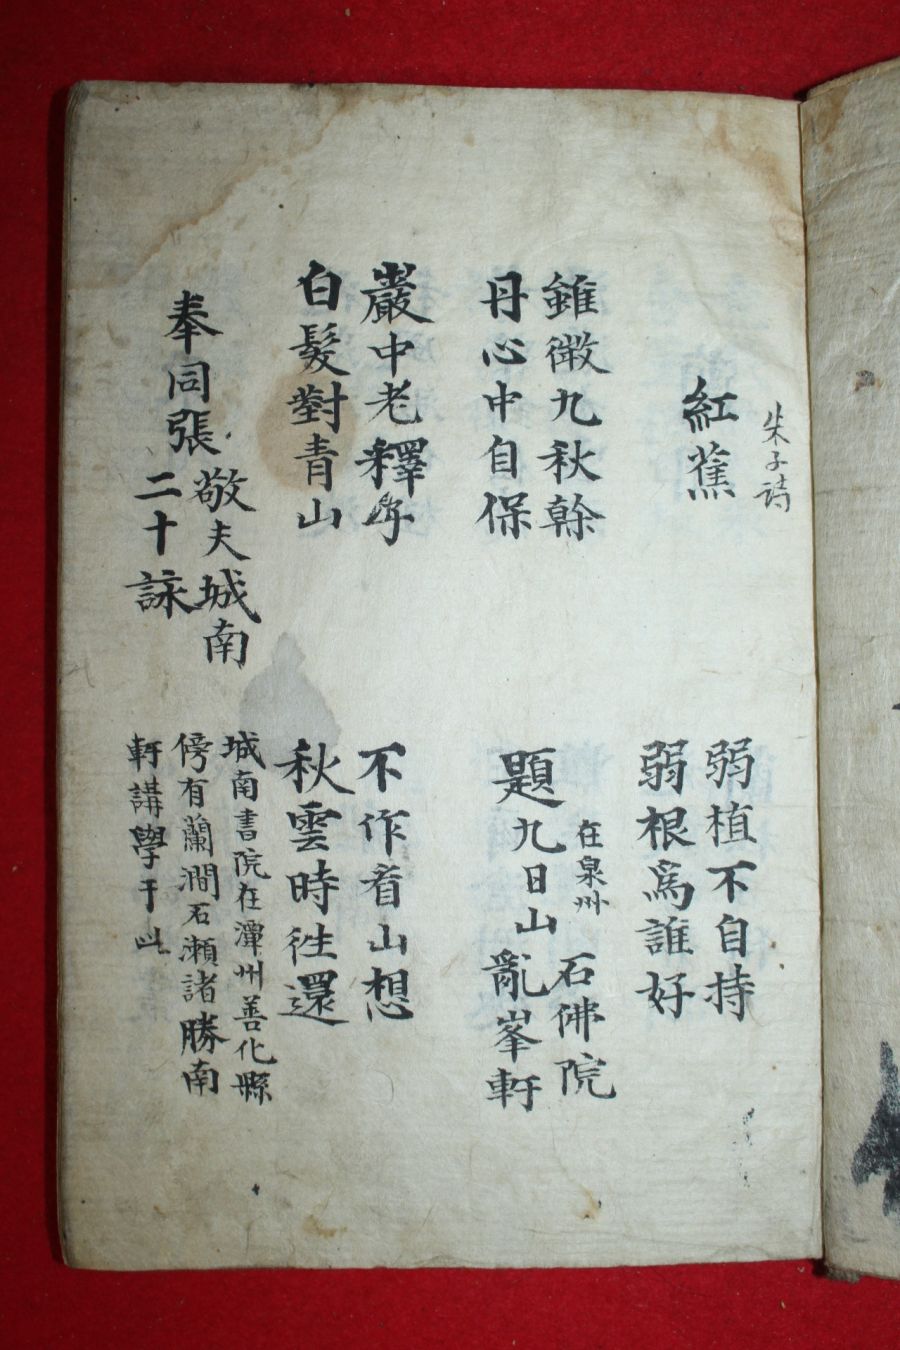 朱子詩
紅蕉
弱植不自持
弱根爲誰好
雖微九秋榦
丹心中自保
題九日山
在泉州
石佛院
亂峯軒
巖中老釋子
白髮對青山
不作看山想
秋雲時徃還
奉同張
敬夫城南
二十詠
城南書院在潭州善化縣
傍有蘭澗石瀨諸勝南
軒講學于此